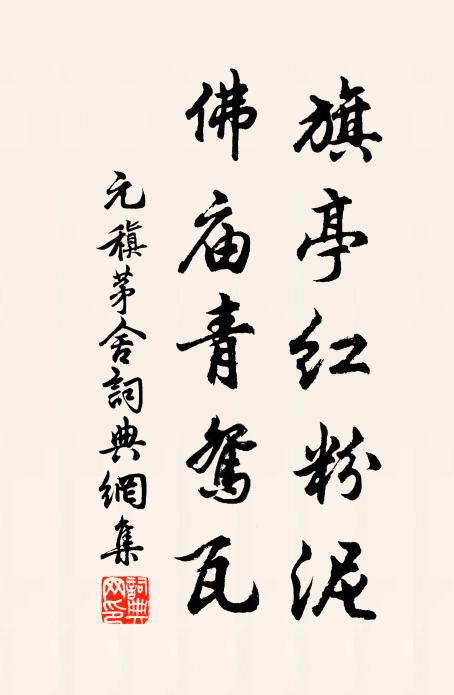 旗亭红粉泥
佛庙青鸳瓦
元稹茅舍詞典網集
詞典网印